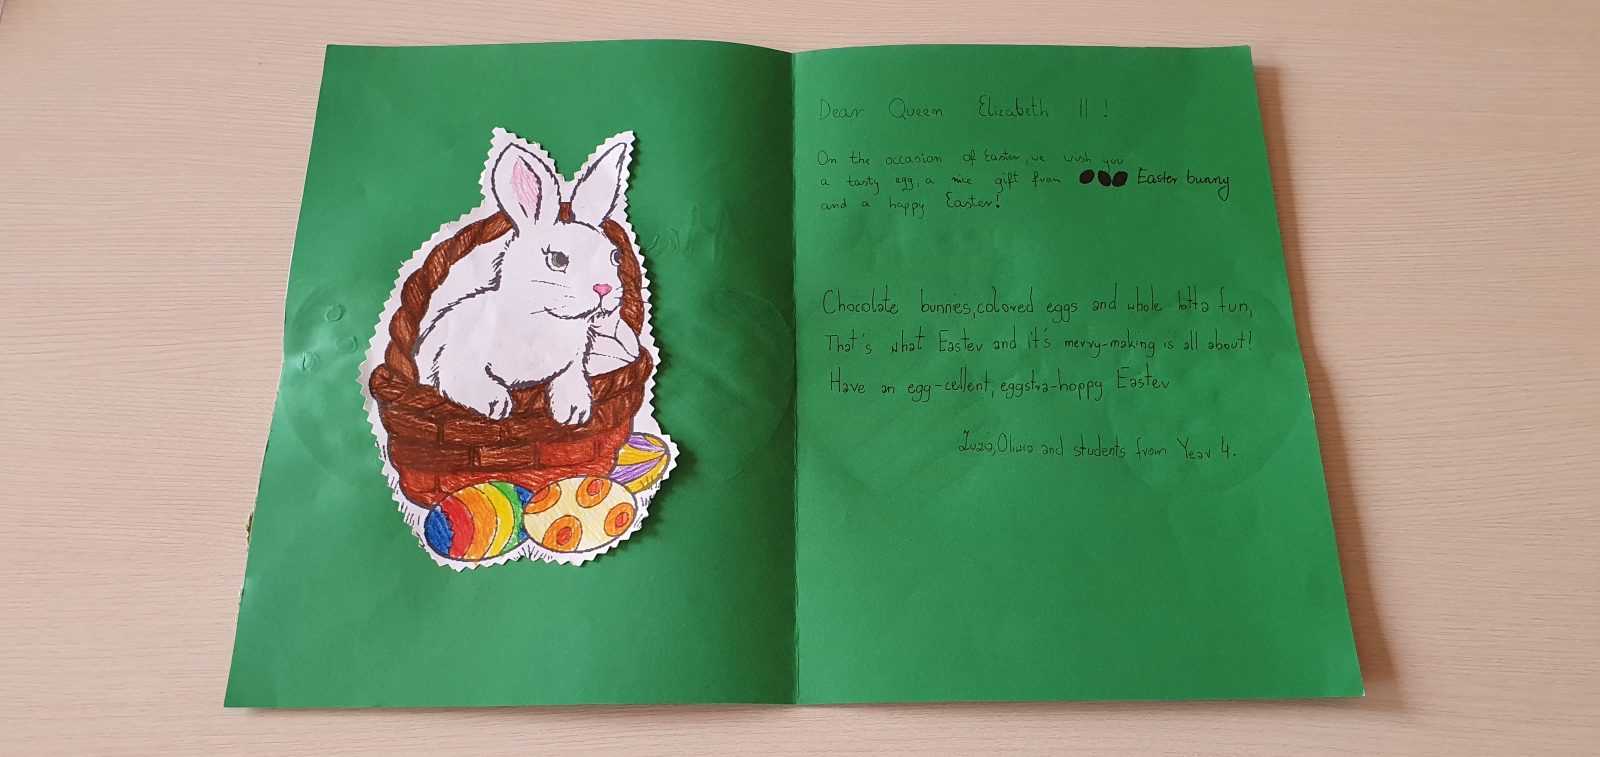 Dear Queen Elizabeth II !
On the occasion of Easter, we wish you
a tasty egg, a nice gift from Easter bunny
and a happy Easter!
Chocolate bunnies, colored eggs and whole lotta fun,
That's what Easter and it's merry-making is all about!
Have an egg-cellent, eggstra-hoppy Easter
Zuzia, Oliwia and students from Year 4.